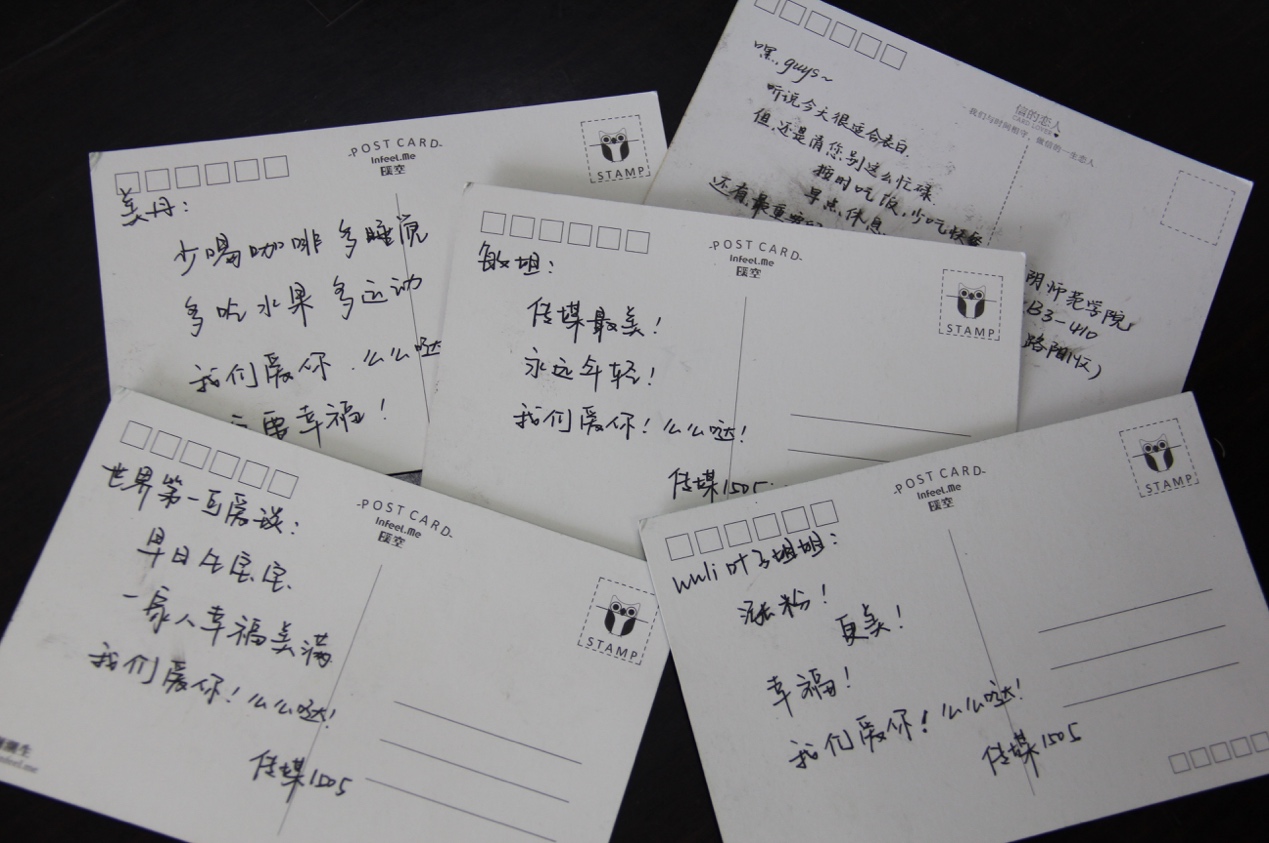 嘿, guys~
听说今天很适合表白
但,还是请您别这么忙碌
按时吃饭,少吃快餐
早点休息
还有,最重要
信的恋人
CARD LOVER
我们与时间相守,做信的一生恋人
阴师范学院
B3-410
POST CARD
Infeel.Me
STAMP
美丹:
少喝咖啡 多睡觉
多吃水果 多运动
我们爱你 么么哒
要幸福!
POST CARD
Infeel.Me
STAMP
敏姐:
传媒最美!
永远年轻!
我们爱你!么么哒!
传媒1505
POST CARD
Infeel.Me
STAMP
世界第一可爱谈:
早日生宝宝
一家人幸福美满
我们爱你!么么哒!
传媒1505
Infeel.me
POST CARD
Infeel.Me
STAMP
wuli叶子姐姐:
涨粉!
更美!
幸福!
我们爱你!么么哒!
传媒1505